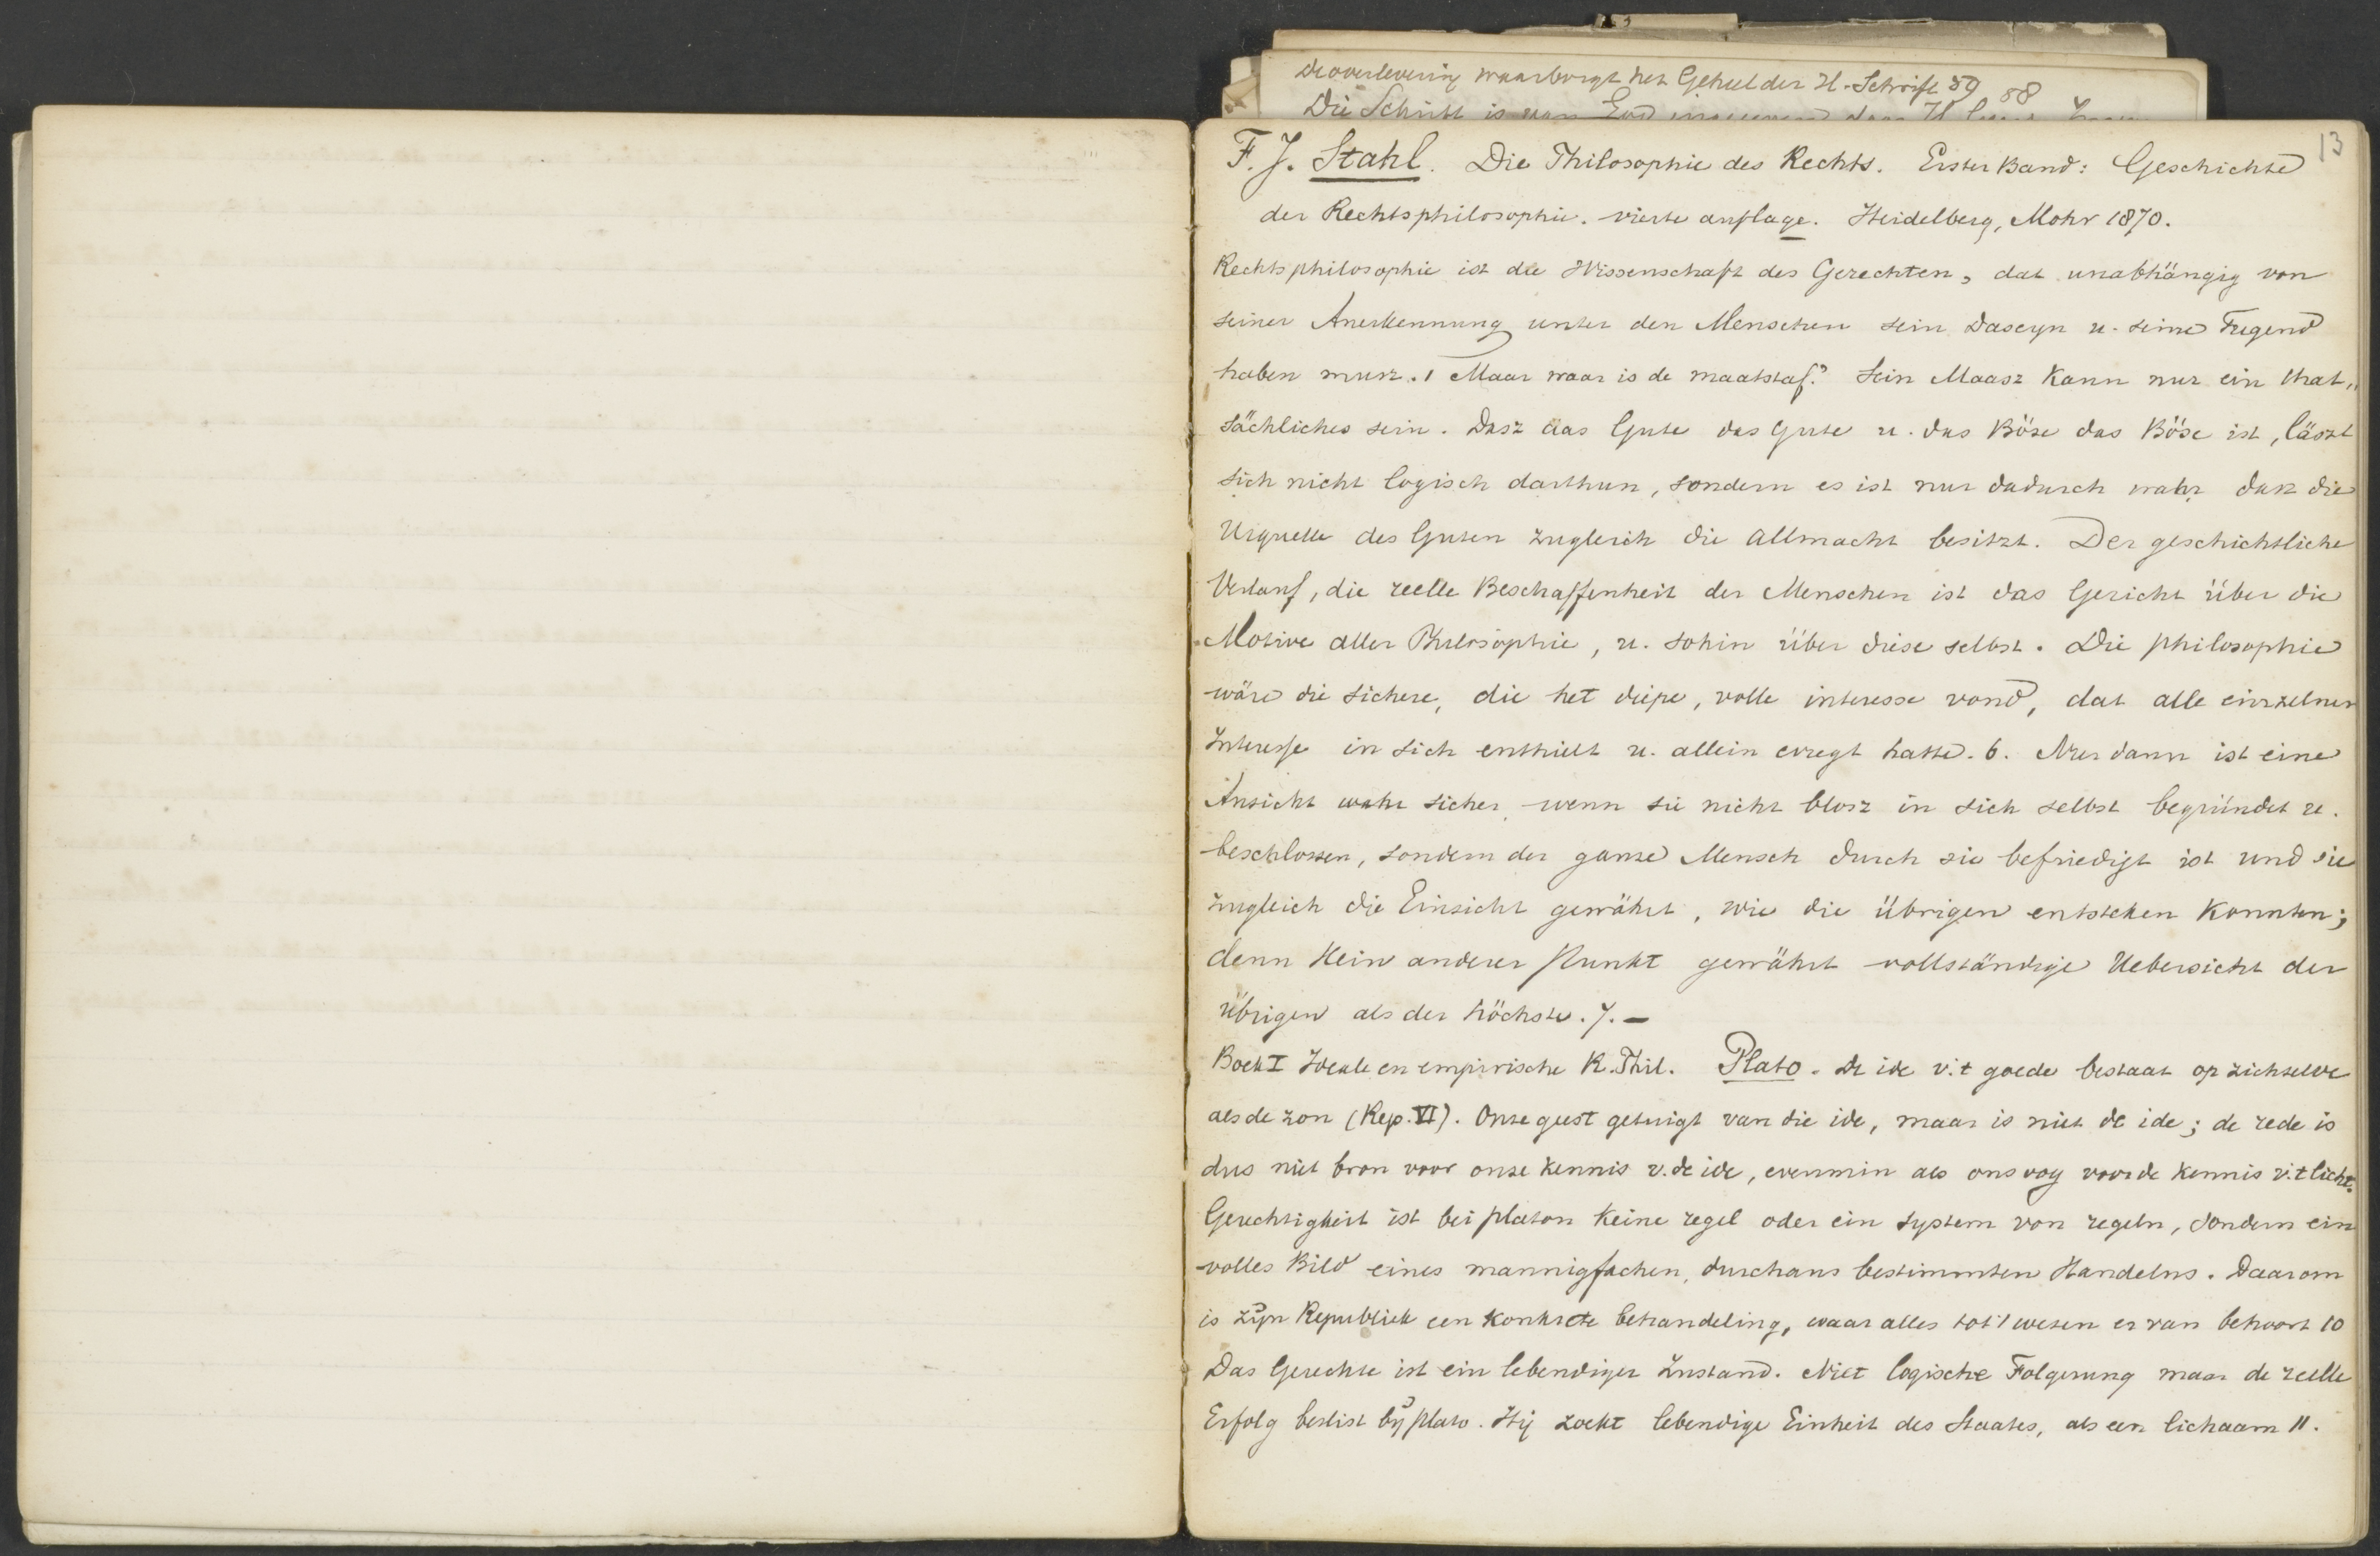 de overlevering waarborgt het Geheel der H. Schrift 59 88
Die Schrift is van God
13
F. J. Stahl. Die Philosophie des Rechts. Erster Band: Geschichte
der Rechtsphilosophie. vierte auflage. Heidelberg, Mohr 1870.
Rechtsphilosophie ist die Wissenschaft des Gerechten, dat unabhängig von
seiner Anerkennung unter den Menschen sein Daseyn u. seine Tugend
haben musz. 1 Maar waar is de maatstaf? Sein Maasz kann nur ein that„
sächliches sein. Dasz das Gute das Gute u. das Böse das Böse ist, läszt
sich nicht logisch darthun, sondern es ist nur dadurch wahr dasz die
Urquelle des Guten zugleich die Allmacht besitzt. Der geschichtliche
Verlauf, die reelle Beschaffenheit der Menschen ist das Gericht über die
Motive aller Philosophie, u. sohin über diese selbst. Die philosophie
wäre die sichere, die het diepe, volle interesse vond, dat alle einzelnen
Interesse in sich enthielt u. allein erregt hatte. 6. Nur dann ist eine
Ansicht wahr sicher, wenn sie nicht blosz in sich selbst begründet u.
beschlossen, sondern der ganze Mensch durch sie befriedigt ist und sie
zugleich die Einsicht gewährt, wie die übrigen entstehen konnten;
denn kein anderer Punkt gewährt vollständige Uebersicht der
übrigen als der höchste. 7. —
Boek I Ideale en empirische R. Phil. Plato. De ide v. t goede bestaat op zichzelve
als de zon (Rep. VI). Onze geest getuigt van die ide, maar is niet de ide; de rede is
dus niet bron voor onze kennis v. de ide, evenmin als ons oog voor de kennis v. t licht.
Gerechtigkeit ist bei platon keine regel oder ein system von regeln, sondern ein
volles Bild eines mannigfachen, durchaus bestimmten Handelns. Daarom
is zijn Republiek een konkrete behandeling, waar alles tot 't wezen er van behoort 10
Das Gerechte ist ein lebendiger Zustand. Niet logische Folgerung maar de reelle
Erfolg beslist bij Plato. Hij zoekt lebendige Einheit des Staates, als een lichaam 11.